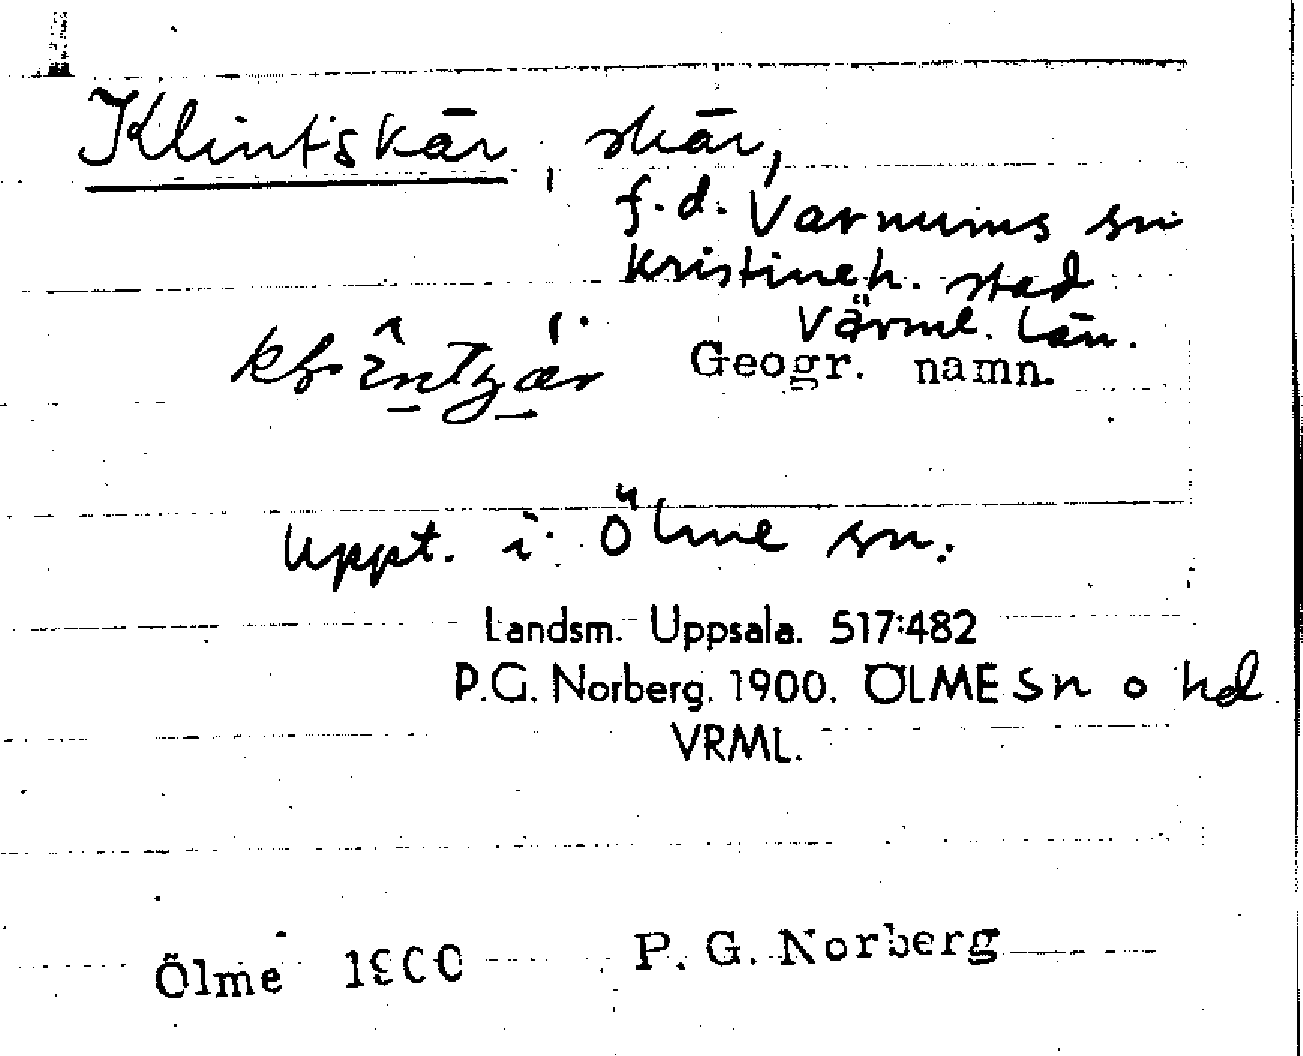 Klintskär, skär,
f.d. Varnums sn
Kristineh. stad
Värml. län.
Geogr. namn.
Uppt. i Ölme sn.
Landsm. Uppsala. 517:482
P.G. Norberg. 1900. ÖLME sn o hd
VRML.
Ölme 1900 P. G. Norberg